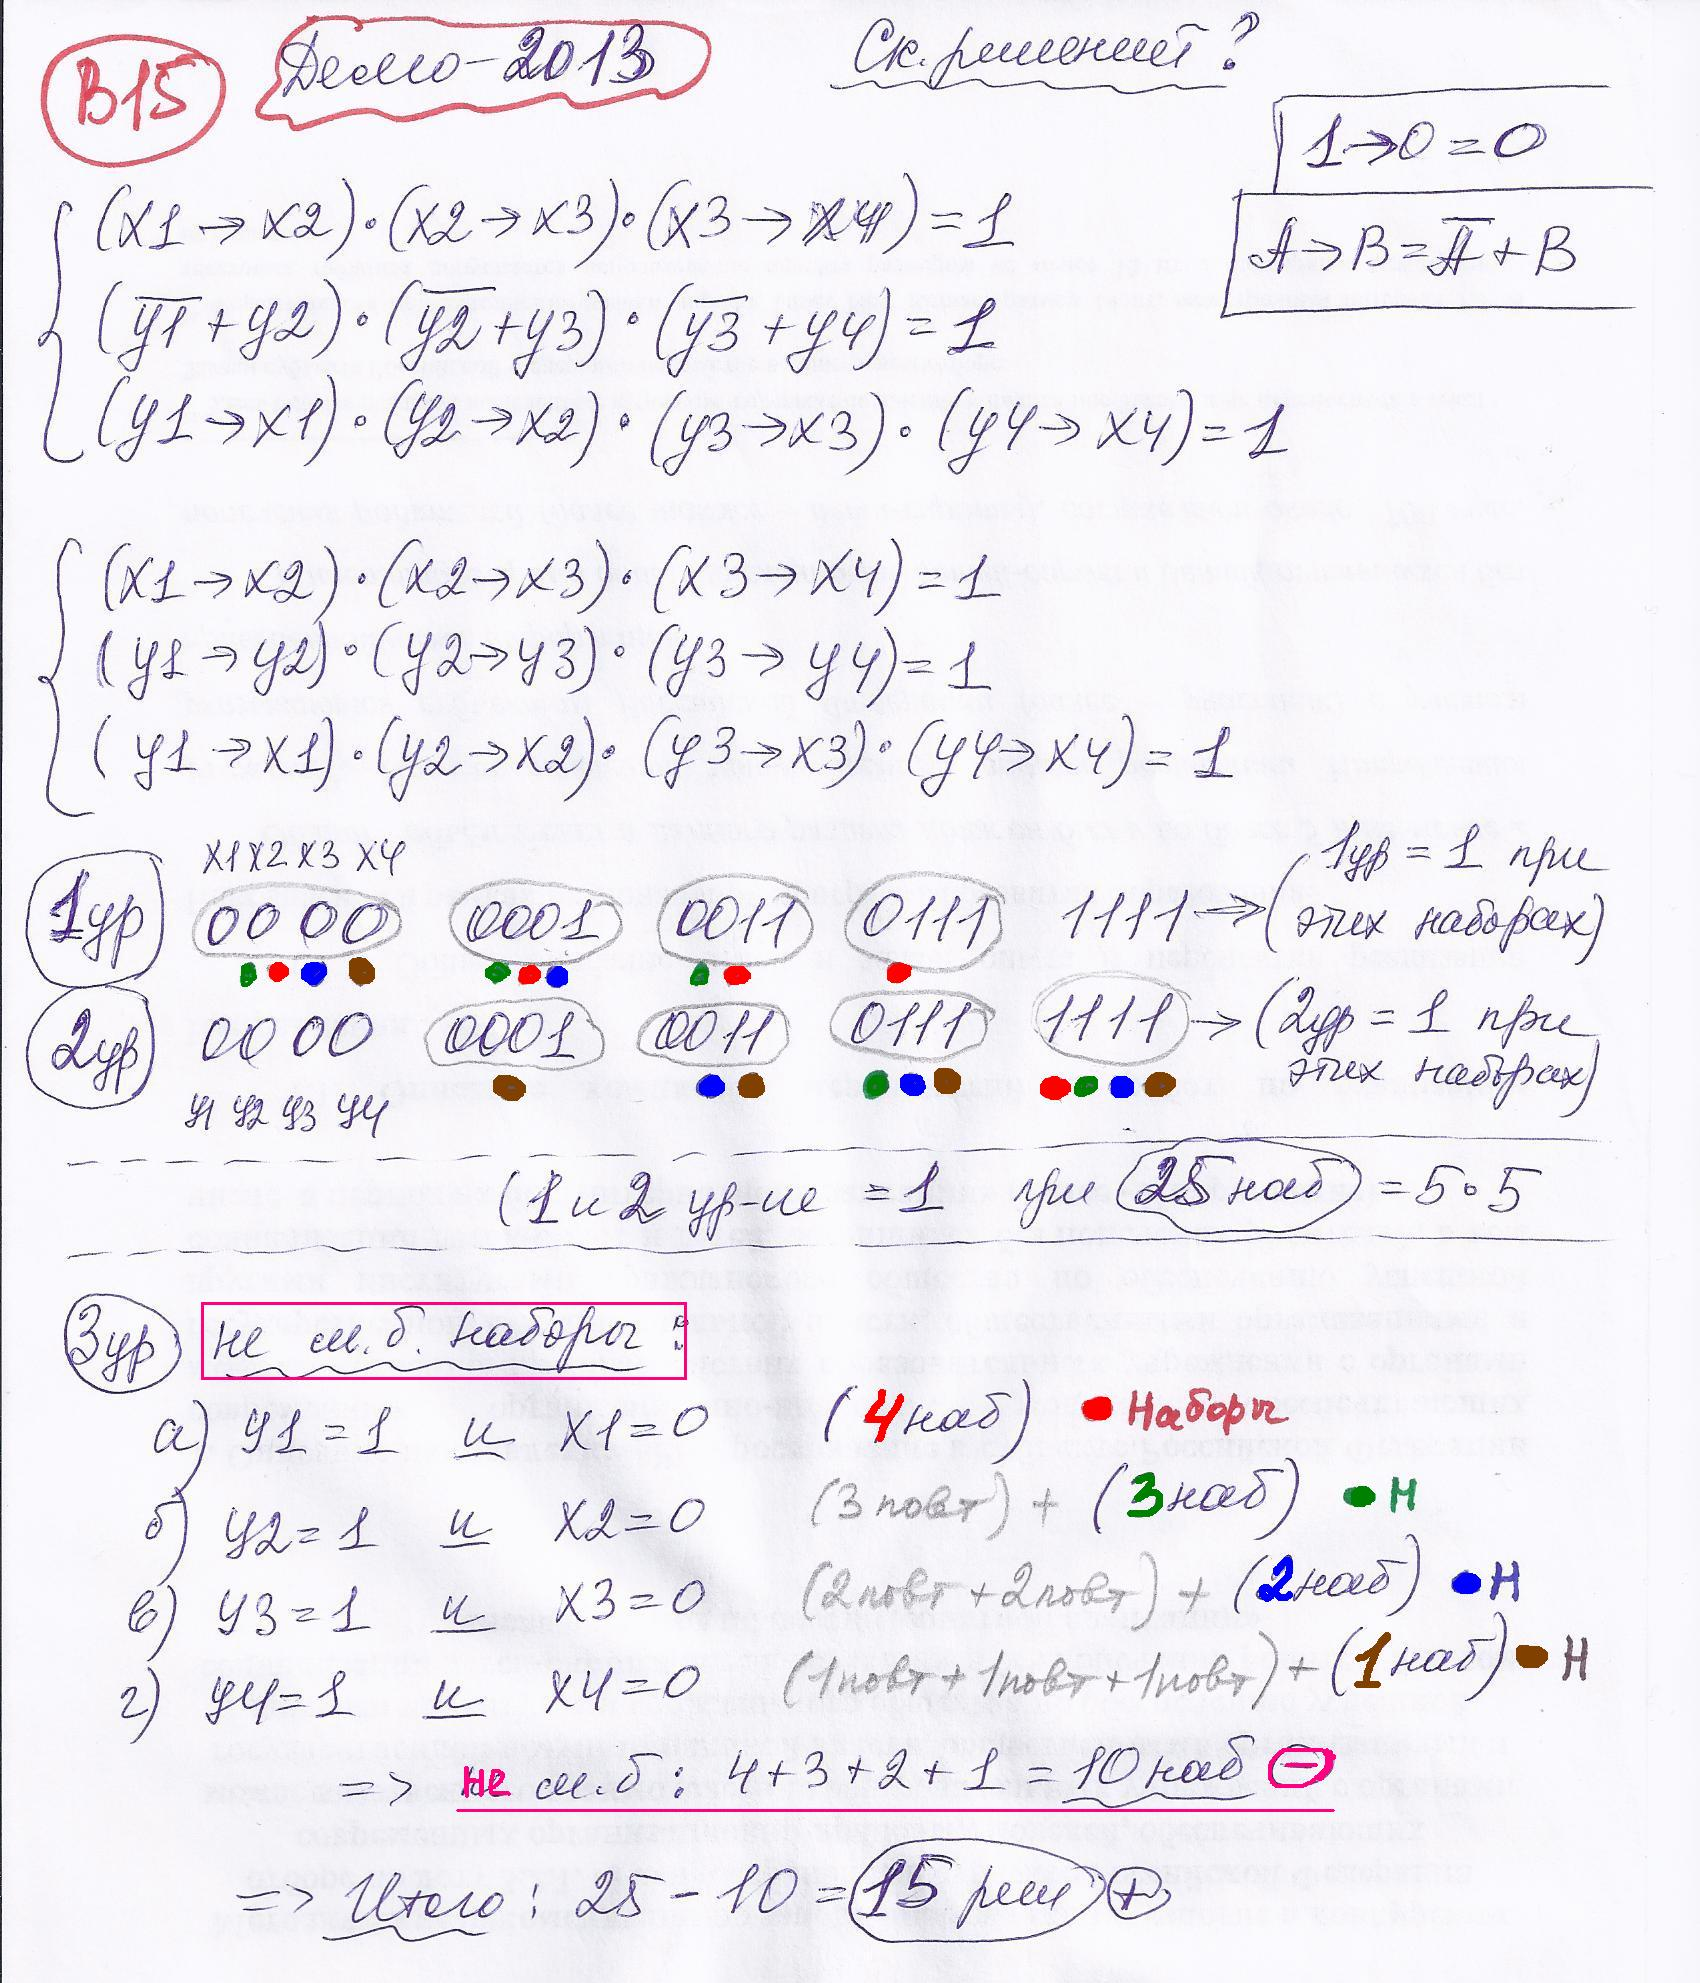 B15 Демо-2013 Ск. решений?
1→0=0
A→B=A̅+B
(x1→x2)·(x2→x3)·(x3→x4)=1
(y̅1̅+y2)·(y̅2̅+y3)·(y̅3̅+y4)=1
(y1→x1)·(y2→x2)·(y3→x3)·(y4→x4)=1
(x1→x2)·(x2→x3)·(x3→x4)=1
(y1→y2)·(y2→y3)·(y3→y4)=1
(y1→x1)·(y2→x2)·(y3→x3)·(y4→x4)=1
x1 x2 x3 x4
1ур 0000 0001 0011 0111 1111 → (1ур=1 при
этих наборах)
2ур 0000 0001 0011 0111 1111 → (2ур=1 при
этих наборах)
y1 y2 y3 y4
(1 и 2 ур-ие =1 при 25 наб = 5·5
3ур не м.б. наборы:
а) y1=1 и x1=0 (4 наб) • Наборы
б) y2=1 и x2=0 (3 повт) + (3 наб) • Н
в) y3=1 и x3=0 (2 повт + 2 повт) + (2 наб) • Н
г) y4=1 и x4=0 (1 повт + 1 повт + 1 повт) + (1 наб) • Н
=> не м.б: 4+3+2+1=10 наб ⊖
=> Итого: 25-10=15 реш ⊕